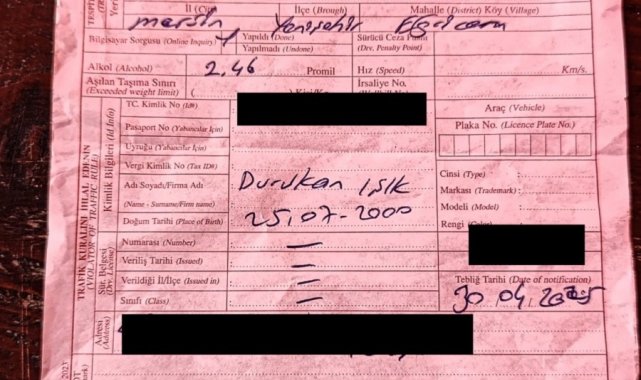 İl (City) İlçe (Brough) Mahalle (District) Köy (Village)
mersin Yenişehir
Bilgisayar Sorgusu (Online Inquiry) Yapıldı (Done)
Yapılmadı (Undone)
Sürücü Ceza Puanı
(Drv. Penalty Point)
Alkol (Alcohol) 2.46 Promil Hız (Speed) Km/s.
Aşılan Taşıma Sınırı
(Exceeded weight limit) (
İrsaliye No.
TRAFİK KURALINI İHLAL EDENİN
(VIOLATOR OF TRAFFIC RULE)
Kimlik Bilgileri (Id Info)
TC. Kimlik No (Id#)
Pasaport No (Yabancılar İçin)
Uyruğu (Yabancılar İçin)
Vergi Kimlik No (Tax ID#)
Adı Soyadı/Firma Adı
(Name - Surname/Firm name)
Durukan Işık
Doğum Tarihi (Place of Birth) 25.07-2000
Sür. Belgesi
(Drv. License)
Numarası (Number) —
Veriliş Tarihi (Issued) —
Verildiği İl/İlçe (Issued in) —
Sınıfı (Class) —
Adresi
(Address)
Araç (Vehicle)
Plaka No. (Licence Plate No.)
Cinsi (Type) :
Markası (Trademark) :
Modeli (Model) :
Rengi
Tebliğ Tarihi (Date of notification)
30.04.2025